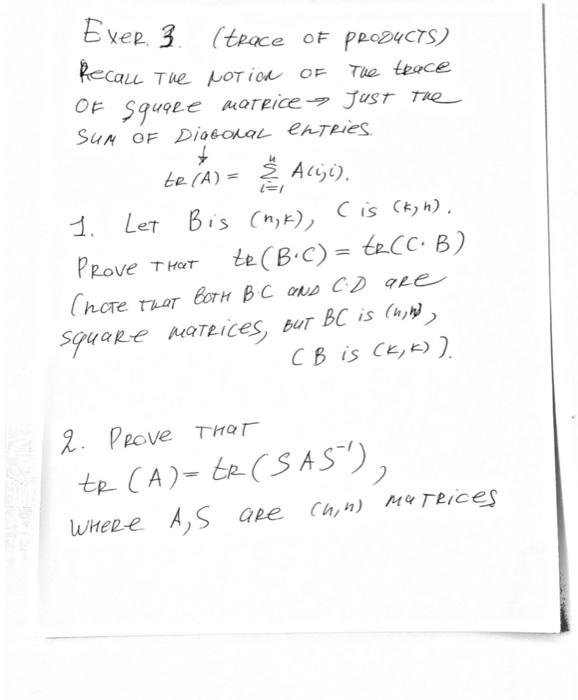 Exer. 3. (trace of products)
Recall the notion of the trace
of square matrice → just the
sum of diagonal entries.
↓
tr(A) = n∑i=1 A(i,i).
1. Let B is (n,k), C is (k,n).
Prove that tr(B·C) = tr(C·B)
(note that both B·C and C·D are
square matrices, but BC is (n,n),
CB is (k,k)).
2. Prove that
tr(A) = tr(SAS⁻¹),
where A,S are (n,n) matrices